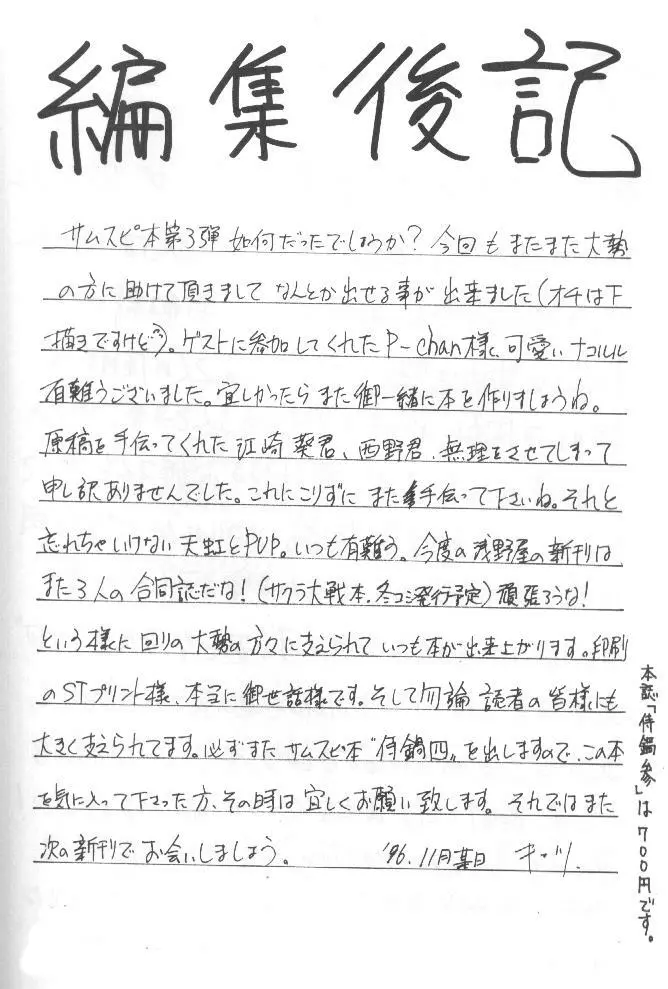 編集後記
サムスピ本第3弾 如何だったでしょうか？今回もまたまた大勢
の方に助けて頂きまして なんとか出せる事が出来ました(オチは下
描きですけど)。ゲストに参加してくれたP-chan様、可愛いナコルル
有難うございました。宜しかったらまた御一緒に本を作りましょうね。
原稿を手伝ってくれた江崎葵君、西野君、無理をさせてしまって
申し訳ありませんでした。これにこりずに また手伝って下さいね。それと
忘れちゃいけない 天虹とPUP。いつも有難う。今度の浅野屋の新刊は
また3人の合同誌だな！(サクラ大戦本、冬コミ発行予定)頑張ろうな！
という様に回りの大勢の方々に支えられて いつも本が出来上がります。印刷
のSTプリント様、本当に御世話様です。そして勿論 読者の皆様にも
大きく支えられてます。必ずまた サムスピ本“侍鍋四„を出しますので、この本
を気に入って下さった方、その時は宜しくお願い致します。それではまた
次の新刊でお会いしましょう。 '96.11月某日 キッツ.
本誌「侍鍋参」は700円です。